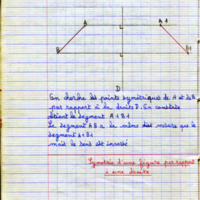 A
A1
B
B1
D
On cherche les points symétriques de A et de B
par rapport à la droite D. On constate
le segment A1B1
Le segment AB a la même mesure que le
segment A1B1
mais le sens est inversé
Symétrie d'une figure par rapport
à une droite